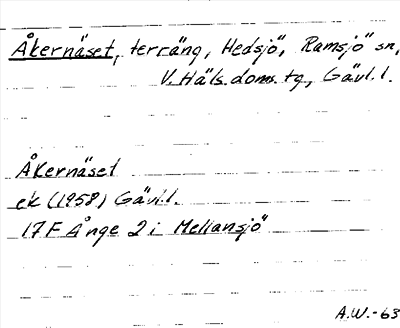 Åkernäset, terräng, Hedsjö, Ramsjö sn,
V. Häls. doms. tg, Gävl. l.
Åkernäset
ek (1958) Gävl. l.
17 F Ånge 2 i Mellansjö
A.W.-63